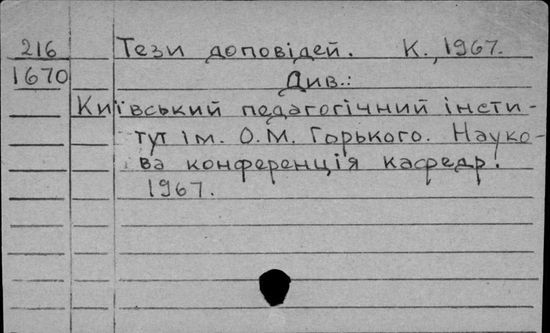 216 Тези доповідей. К., 1967.
1670 Див.:
Київський педагогічний інсти-
тут ім. О.М. Горького. Науко-
ва конференція кафедр.
1967.